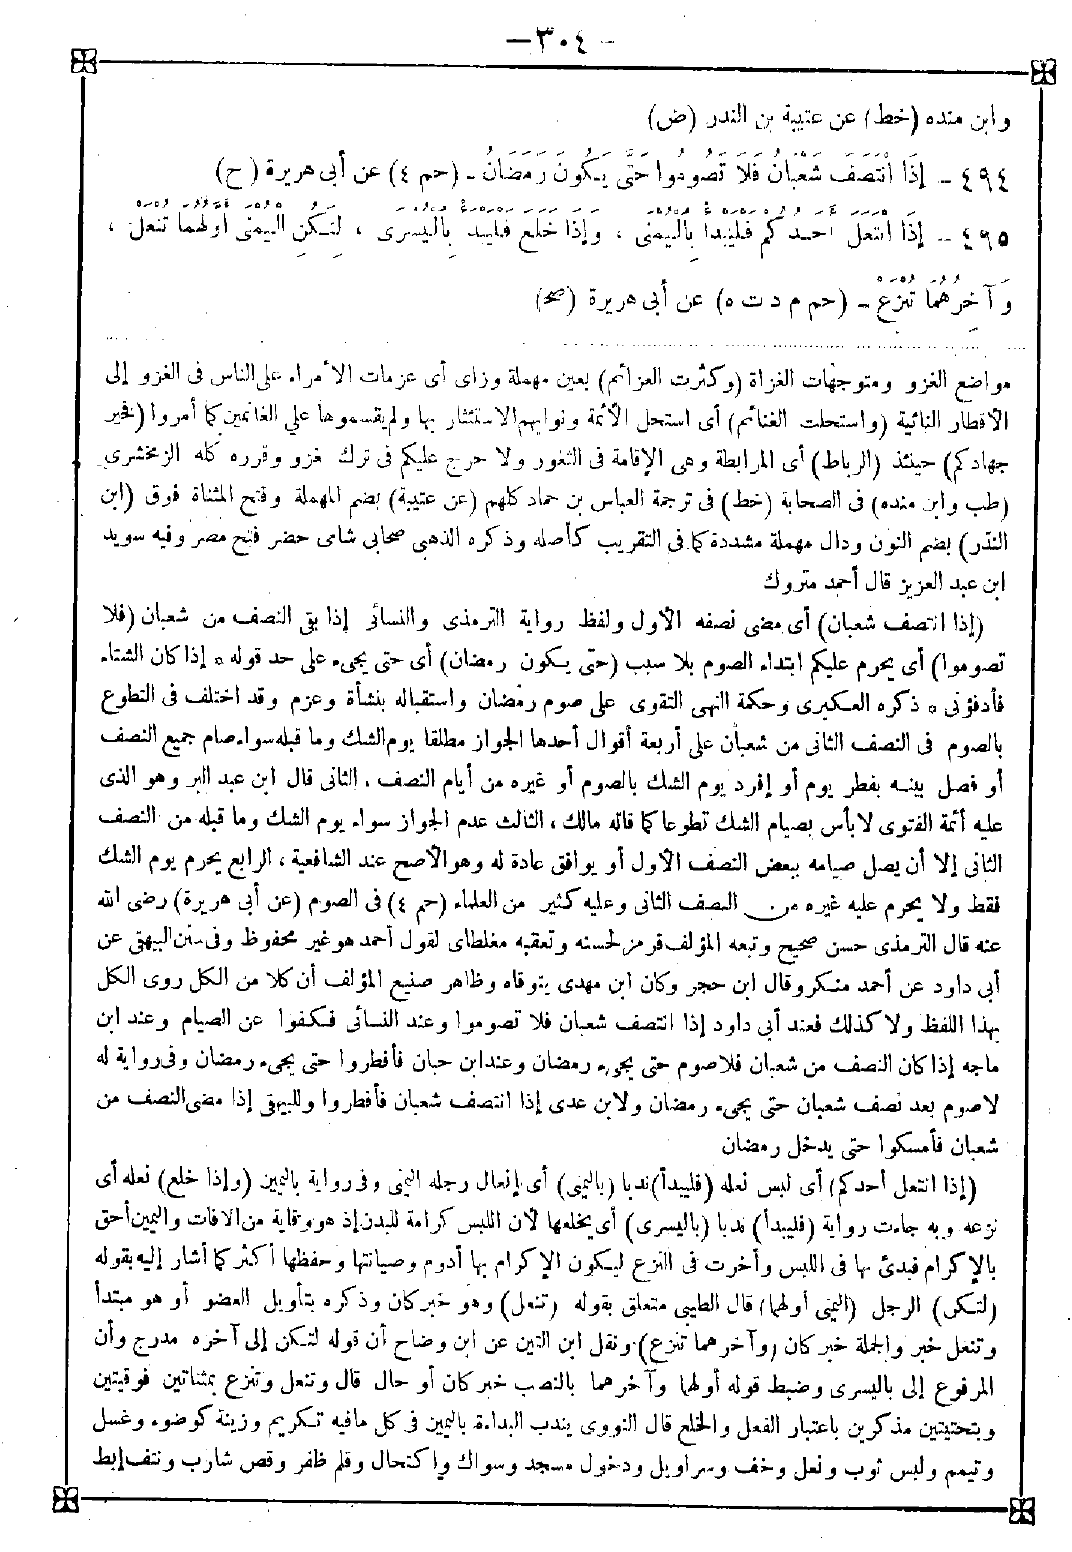 - ٣٠٤ -
وابن منده (خط) عن عتيبة بن الندر (ض)
٤٩٤ - إِذَا انْتَصَفَ شَعْبَانُ فَلَا تَصُومُوا حَتَّى يَكُونَ رَمَضَانُ - (حم ٤) عن أبى هريرة (ح)
٤٩٥ - إِذَا انْتَعَلَ أَحَدُكُمْ فَلْيَبْدَأْ بِالْيُمْنَى ، وَإِذَا خَلَعَ فَلْيَبْدَأْ بِالْيُسْرَى ، لِتَكُنِ الْيُمْنَى أَوَّلَهُمَا تُنْعَلُ ،
وَآخِرُهُمَا تُنْزَعُ - (حم م د ت ه) عن أبى هريرة (صح)
مواضع الغزو ومتوجهات الغزاة (وكثرت العزائم) بعين مهملة وزاى أى عزمات الأمراء على الناس فى الغزو إلى
الأقطار النائية (واستحلت الغنائم) أى استحل الأئمة ونوابهم الاستئثار بها ولم يقسموها على الغانمين كما أمروا (فخير
جهادكم) حينئذ (الرباط) أى المرابطة وهى الإقامة فى الثغور ولا حرج عليكم فى ترك غزو وقرره كله الزمخشرى
(طب وابن منده) فى الصحابة (خط) فى ترجمة العباس بن حماد كلهم (عن عتيبة) بضم المهملة وفتح المثناة فوق (ابن
الندر) بضم النون ودال مهملة مشددة كما فى التقريب كأصله وذكره الذهبى صحابى شامى حضر فتح مصر وفيه سويد
ابن عبد العزيز قال أحمد متروك
(إذا انتصف شعبان) أى مضى نصفه الأول ولفظ رواية الترمذى والنسائى إذا بقى النصف من شعبان (فلا
تصوموا) أى يحرم عليكم ابتداء الصوم بلا سبب (حتى يكون رمضان) أى حتى يجىء على حد قوله * إذا كان الشتاء
فأدفئونى * ذكره العكبرى وحكمة النهى التقوى على صوم رمضان واستقباله بنشأة وعزم وقد اختلف فى التطوع
بالصوم فى النصف الثانى من شعبان على أربعة أقوال أحدها الجواز مطلقا يوم الشك وما قبله سواء صام جميع النصف
أو فصل بينه بفطر يوم أو إفرد يوم الشك بالصوم أو غيره من أيام النصف ، الثانى قال ابن عبد البر وهو الذى
عليه أئمة الفتوى لا بأس بصيام الشك تطوعا كما قاله مالك ، الثالث عدم الجواز سواء يوم الشك وما قبله من النصف
الثانى إلا أن يصل صيامه ببعض النصف الأول أو يوافق عادة له وهو الأصح عند الشافعية ، الرابع يحرم يوم الشك
فقط ولا يحرم عليه غيره من النصف الثانى وعليه كثير من العلماء (حم ٤) فى الصوم (عن أبى هريرة) رضى الله
عنه قال الترمذى حسن صحيح وتبعه المؤلف فرمز لحسنه وتعقبه مغلطاى لقول أحمد هو غير محفوظ وفى سنن البيهقى عن
أبى داود عن أحمد منكر وقال ابن حجر وكان ابن مهدى يتوقاه وظاهر صنيع المؤلف أن كلا من الكل روى الكل
بهذا اللفظ ولا كذلك فعند أبى داود إذا انتصف شعبان فلا تصوموا وعند النسائى فكفوا عن الصيام وعند ابن
ماجه إذا كان النصف من شعبان فلا صوم حتى يجىء رمضان وعند ابن حبان فأفطروا حتى يجىء رمضان وفى رواية له
لا صوم بعد نصف شعبان حتى يجىء رمضان ولابن عدى إذا انتصف شعبان فأفطروا وللبيهقى إذا مضى النصف من
شعبان فأمسكوا حتى يدخل رمضان
(إذا انتعل أحدكم) أى لبس نعله (فليبدأ) ندبا (باليمنى) أى إنعال رجله اليمنى وفى رواية باليمين (وإذا خلع) نعله أى
نزعه وبه جاءت رواية (فليبدأ) ندبا (باليسرى) أى يخلعها لأن اللبس كرامة للبدن إذ هو وقاية من الآفات واليمين أحق
بالإكرام فبدئ بها فى اللبس وأخرت فى النزع ليكون الإكرام بها أدوم وصيانتها وحفظها أكثر كما أشار إليه بقوله
(لتكن) الرجل (اليمنى أولهما) قال الطيبى متعلق بقوله (تنعل) وهو خبر كان وذكره بتأويل العضو أو هو مبتدأ
وتنعل خبر والجملة خبر كان (وآخرهما تنزع) ونقل ابن التين عن ابن وضاح أن قوله لتكن إلى آخره مدرج وأن
المرفوع إلى باليسرى وضبط قوله أولهما وآخرهما بالنصب خبر كان أو حال قال وتنعل وتنزع بمثناتين فوقيتين
وبتحتيتين مذكرين باعتبار الفعل والخلع قال النووى يندب البداءة باليمين فى كل ما فيه تكريم وزينة كوضوء وغسل
وتيمم ولبس ثوب ونعل وخف وسراويل ودخول مسجد وسواك واكتحال وقلم ظفر وقص شارب ونتف إبط